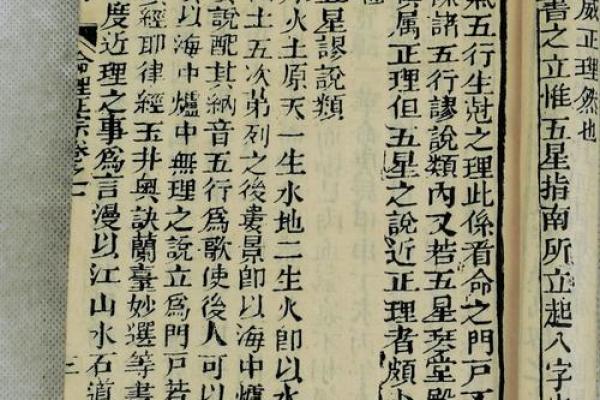 威正理然也
書之立惟五星指南所立起八字
氣五行生尅之理此係看命之門戶
諸五行謬說類內又若五星琴堂殿
眞属正理但五星之說近正理者頗
五星謬說類
火土原天一生水地二生火卽以水
土五次第列之後婁景卽以海中爐
說配其納音五行爲歌使後人可以
以海中爐中無理之說立爲門戶若
經耶律經玉井奥訣蘭臺妙選等書
度近理之事爲言漫以江山水石道
命理正宗卷之